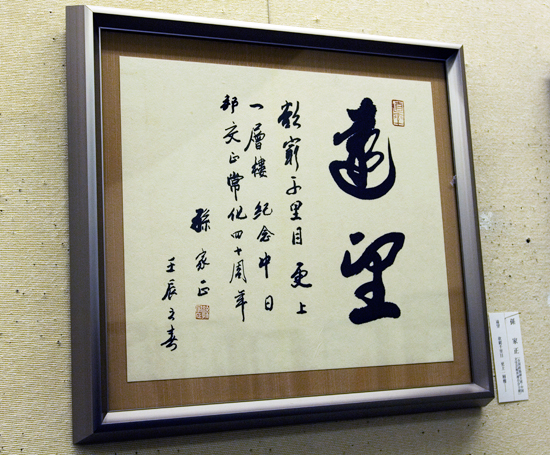 遠望
欲窮千里目更上
一層樓 紀念中日
邦交正常化四十周年
孫家正
壬辰之春
孫家正